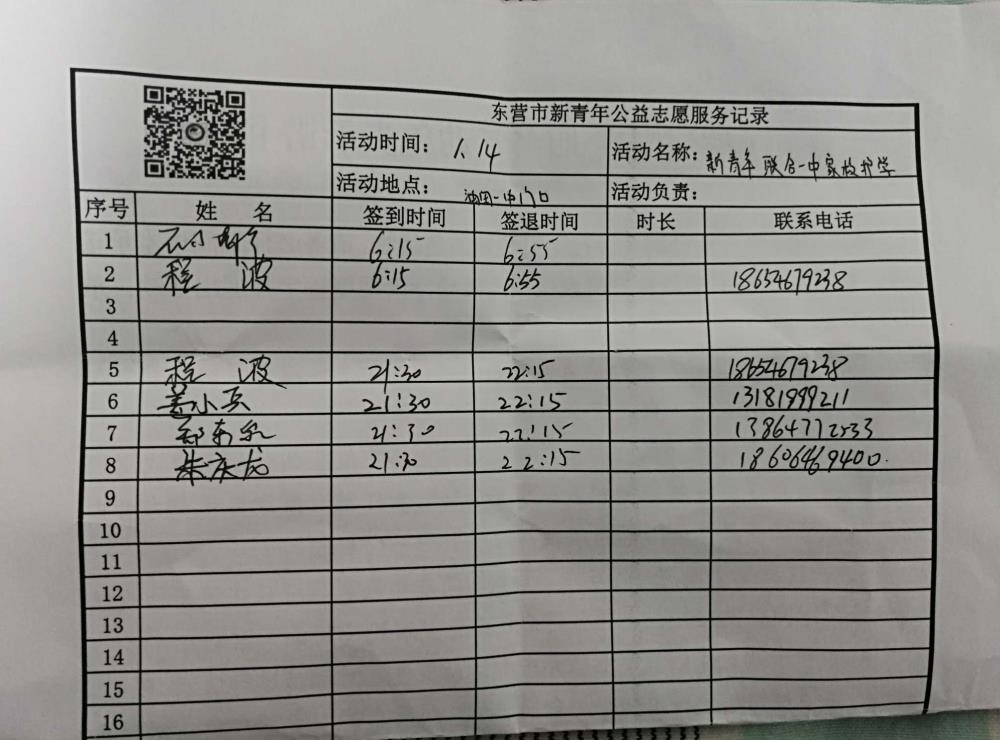 东营市新青年公益志愿服务记录
活动时间: 1.14 活动名称: 新青年联合一中家校护学
活动地点: 油田一中门口 活动负责:
序号 姓 名 签到时间 签退时间 时长 联系电话
1 6:15 6:55
2 程 波 6:15 6:55 18654679238
3
4
5 程 波 21:30 22:15 18654679238
6 姜小兵 21:30 22:15 13181999211
7 21:30 22:15 13864712533
8 朱庆龙 21:30 22:15 18606469400
9
10
11
12
13
14
15
16